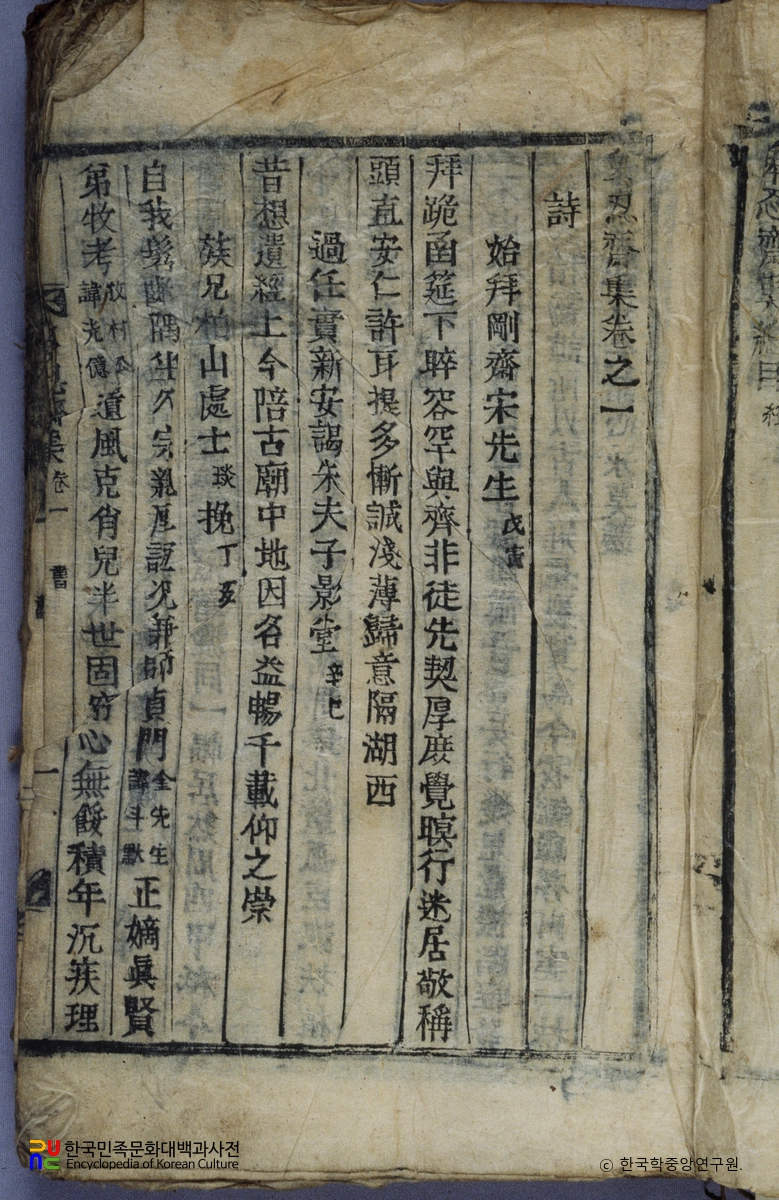 忍齋集卷之一
詩
始拜剛齋宋先生 戊寅
拜跪函筵下晬容罕與齊非徒先契厚庶覺暝行迷居敬稱
頭直安仁許耳提多慚誠淺薄歸意隔湖西
過任實新安謁朱夫子影堂 辛巳
昔想遺經上今陪古廟中地因名益暢千載仰之崇
族兄柏山處士 琰 挽 丁亥
自我髮齒隅 久宗親厚誼況兼師貞門 金先生諱斗默 正嫡眞賢
第牧考 牧村公諱光億 遺風克肖兒半世固窮心無餒積年沉疾理
忍齋集 卷一 書 一
한국민족문화대백과사전
Encyclopedia of Korean Culture
ⓒ 한국학중앙연구원.